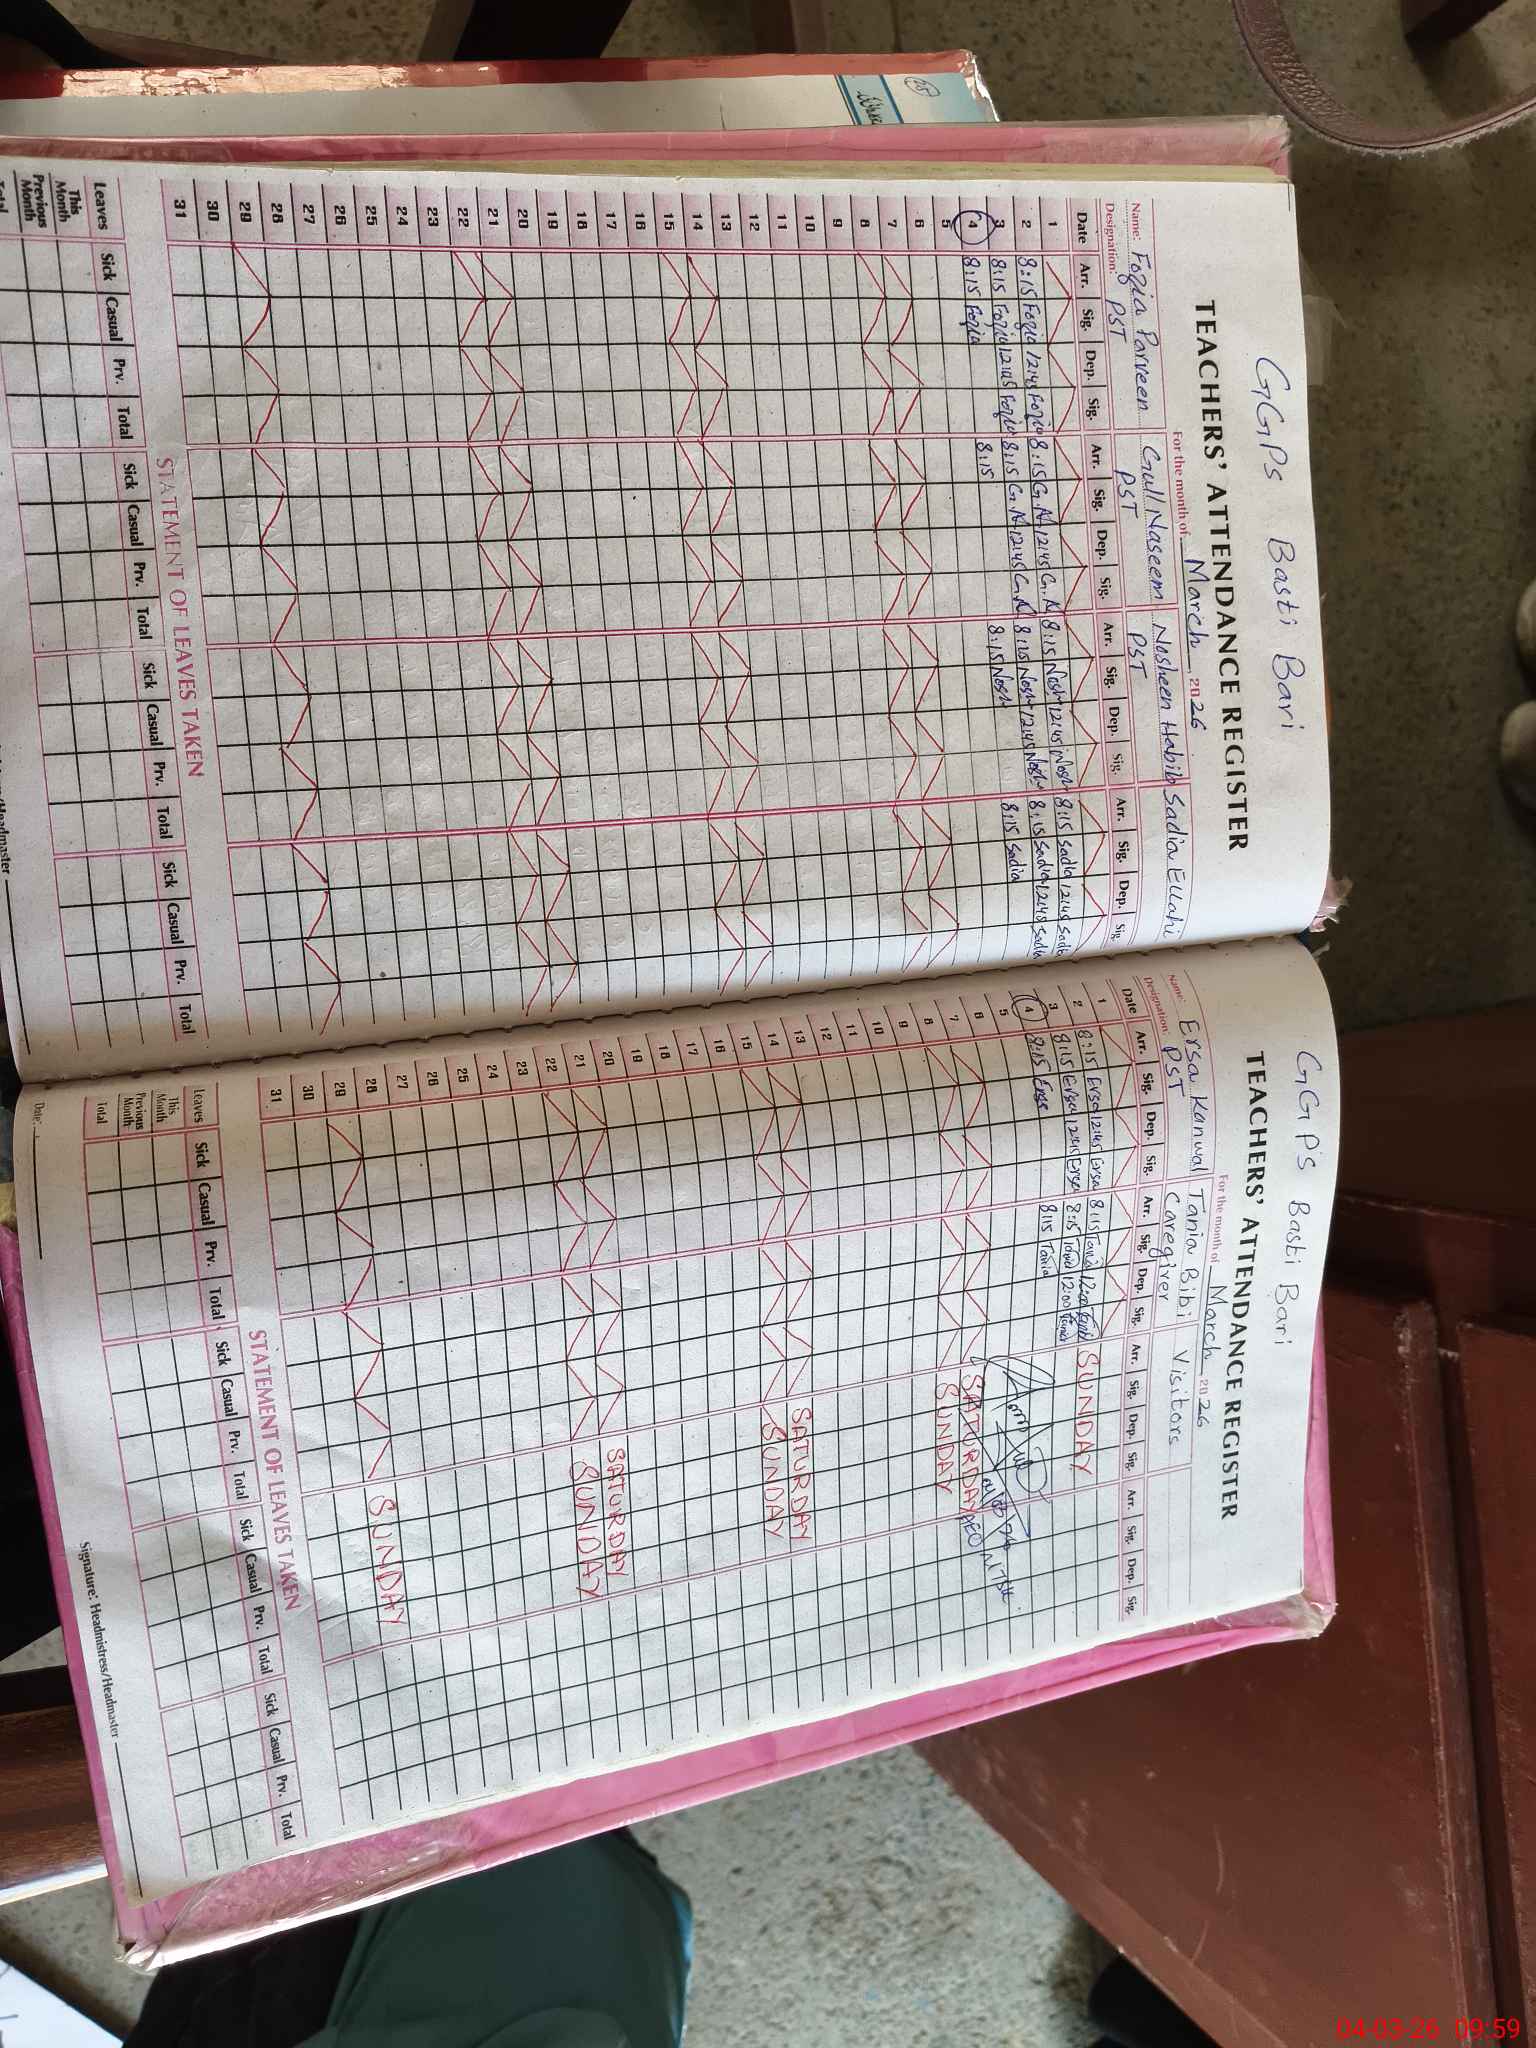 GGPS Basti Bari
TEACHERS' ATTENDANCE REGISTER
For the month of March 2026
Name: Fozia Parveen Gull Naseem Nosheen Habib Sadia Ellahi
Designation: PST PST PST
Date Arr. Sig. Dep. Sig. Arr. Sig. Dep. Sig. Arr. Sig. Dep. Sig. Arr. Sig. Dep. Sig.
1
2 8:15 Fozia 12:45 Fozia 8:15 G.N 12:45 G.N 8:15 Nosh 12:45 Nosh 8:15 Sadia 12:45 Sadia
3 8:15 Fozia 12:45 Fozia 8:15 G.N 12:45 G.N 8:15 Nosh 12:45 Nosh 8:15 Sadia 12:45 Sadia
4 8:15 Fozia 8:15 8:15 Nosh 8:15 Sadia
5
6
7
8
9
10
11
12
13
14
15
16
17
18
19
20
21
22
23
24
25
26
27
28
29
30
31
STATEMENT OF LEAVES TAKEN
Leaves Sick Casual Prv. Total Sick Casual Prv. Total Sick Casual Prv. Total Sick Casual Prv. Total
This Month
Previous Month
Total
/Headmaster
GGPS Basti Bari
TEACHERS' ATTENDANCE REGISTER
For the month of March 2026
Name: Ersa Kanwal Tania Bibi Visitors
Designation: PST Caregiver
Date Arr. Sig. Dep. Sig. Arr. Sig. Dep. Sig. Arr. Sig. Dep. Sig. Arr. Sig. Dep. Sig.
1 SUNDAY
2 8:15 Ersa 12:45 Ersa 8:15 Tania 12:00 Tania
3 8:15 Ersa 12:45 Ersa 8:15 Tania 12:00 Tania
4 8:15 Ersa 8:15 Tania
5
6
7 SATURDAY AEO
8 SUNDAY
9
10
11
12
13
14 SATURDAY
15 SUNDAY
16
17
18
19
20
21 SATURDAY
22 SUNDAY
23
24
25
26
27
28
29 SUNDAY
30
31
STATEMENT OF LEAVES TAKEN
Leaves Sick Casual Prv. Total Sick Casual Prv. Total Sick Casual Prv. Total Sick Casual Prv. Total
This Month
Previous Month
Total
Date: Signature: Headmistress/Headmaster
04-03-26 09:59